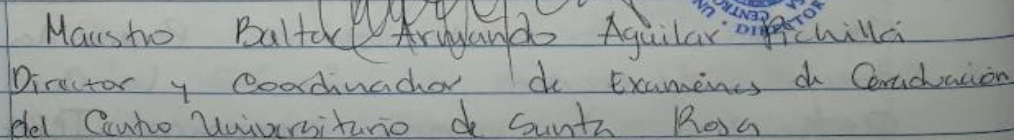 Maestro Baltar Armando Aguilar Pichillá
Director y Coordinador de Exámenes de Graduación
del Centro Universitario de Santa Rosa